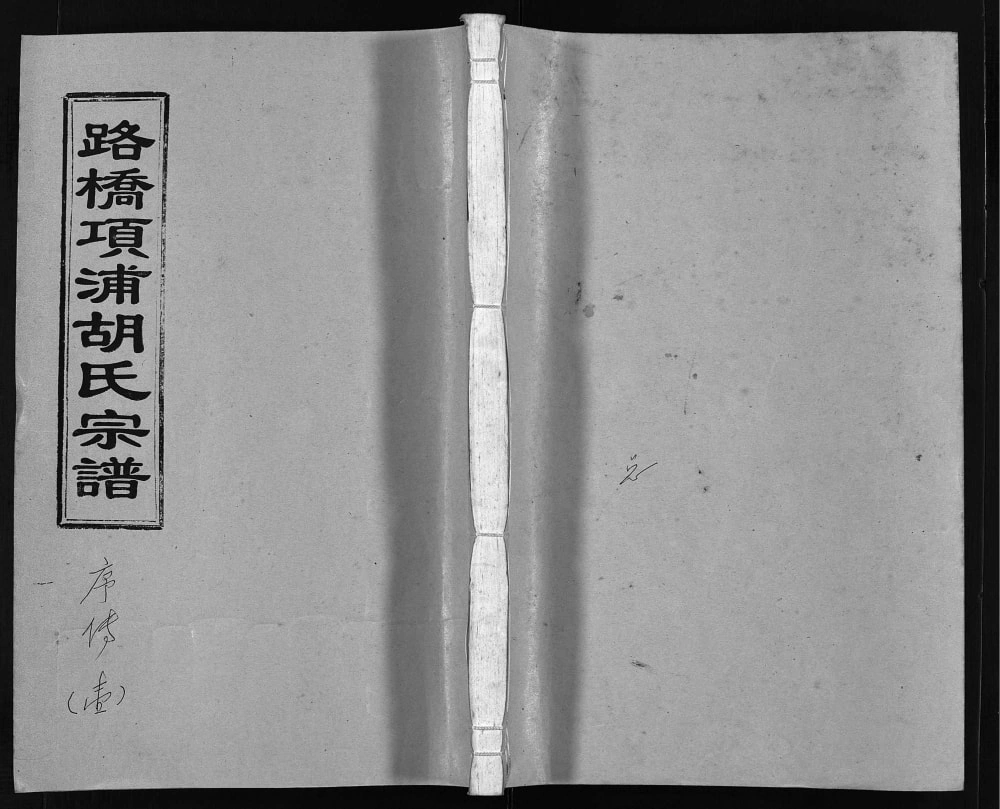 路橋項浦胡氏宗譜
序傳(壹)
一